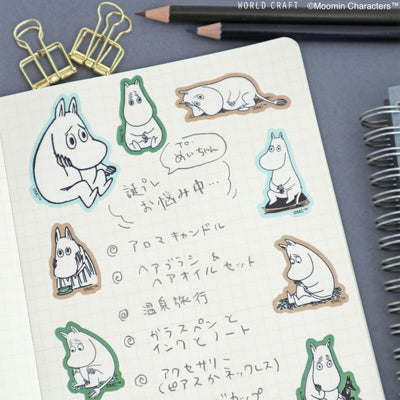 WORLD CRAFT ©Moomin Characters™
To.
めいちゃん
誕プレ
お悩み中…
アロマキャンドル
ヘアブラシ &
ヘアオイルセット
温泉旅行
ガラスペンと
インクとノート
アクセサリー
(ピアスかネックレス)
カップ
©MC™
©MC™
©MC™
©MC™